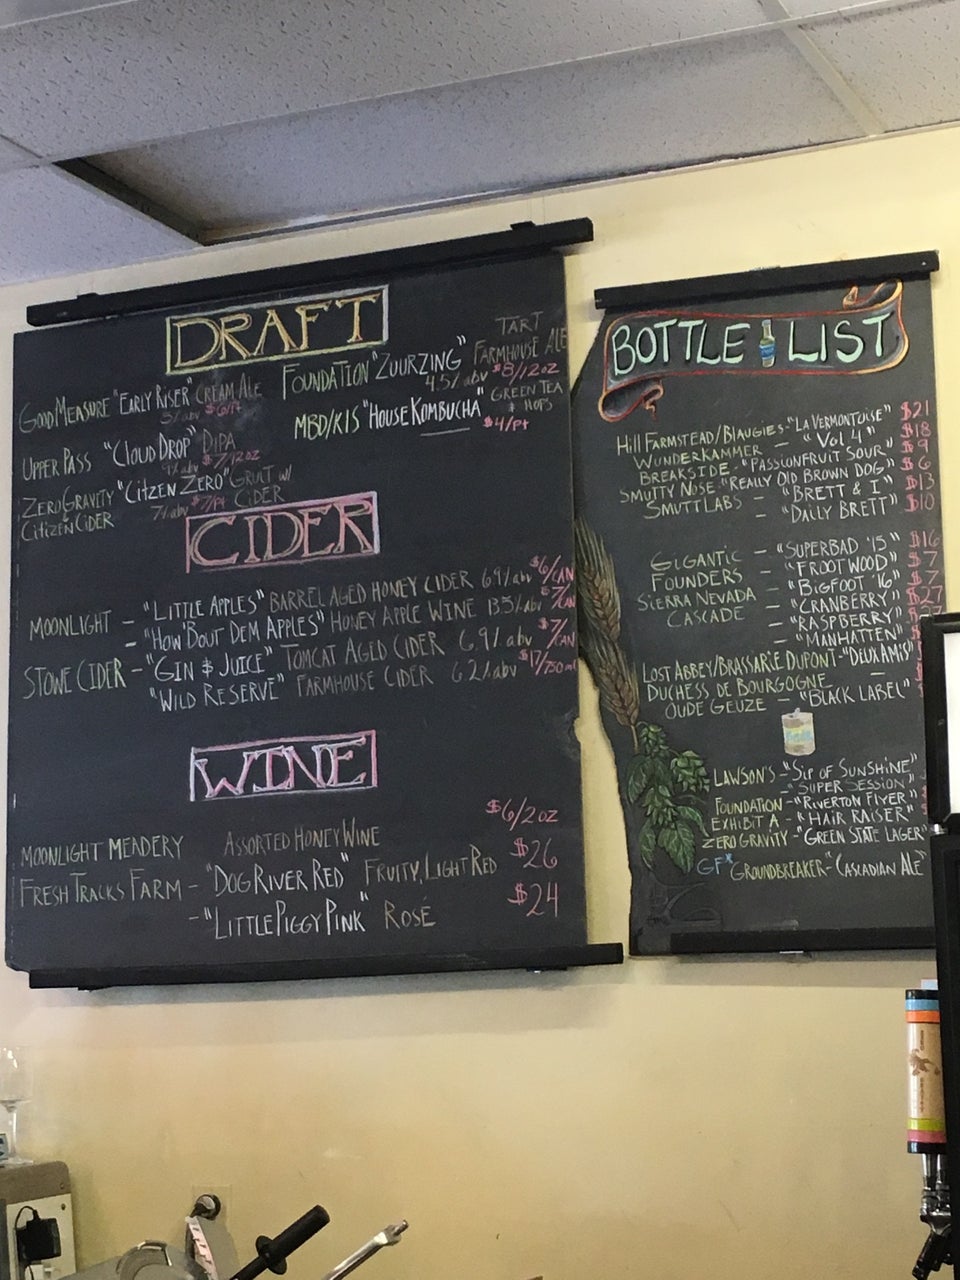 DRAFT
GOOD MEASURE "EARLY RISER" CREAM ALE
5% abv $6/Pt
UPPER PASS "CLOUD DROP" DIPA
9% abv $7/12oz
ZERO GRAVITY "CITZEN ZERO" GRUIT w/
CITIZEN CIDER 7% abv $7/Pt CIDER
FOUNDATION "ZUURZING" TART FARMHOUSE ALE
4.5% abv $8/12oz
MBD/KIS "HOUSE KOMBUCHA" GREEN TEA & HOPS
$4/Pt
CIDER
MOONLIGHT - "LITTLE APPLES" BARREL AGED HONEY CIDER 6.9% abv $6/CAN
- "HOW 'BOUT DEM APPLES" HONEY APPLE WINE 13.5% abv $7/CAN
STOWE CIDER - "GIN & JUICE" TOMCAT AGED CIDER 6.9% abv $7/CAN
"WILD RESERVE" FARMHOUSE CIDER 6.2% abv $17/750ml
WINE
$6/2oz
MOONLIGHT MEADERY ASSORTED HONEY WINE
FRESH TRACKS FARM - "DOG RIVER RED" FRUITY, LIGHT RED $26
- "LITTLE PIGGY PINK" ROSÉ $24
BOTTLE LIST
HILL FARMSTEAD/BLAUGIES - "LA VERMONTOISE" $21
WUNDERKAMMER - "VOL 4" $18
BREAKSIDE - "PASSIONFRUIT SOUR" $9
SMUTTY NOSE "REALLY OLD BROWN DOG" $6
SMUTTLABS - "BRETT & I" $13
- "DALLY BRETT" $10
GIGANTIC - "SUPERBAD '15" $16
FOUNDERS - "FROOTWOOD" $7
SIERRA NEVADA - "BIGFOOT '16" $7
CASCADE - "CRANBERRY" $27
- "RASPBERRY"
- "MANHATTEN"
LOST ABBEY/BRASSARIE DUPONT - "DEUX AMIS"
DUCHESS DE BOURGOGNE -
OUDE GEUZE - "BLACK LABEL"
LAWSON'S - "SIP OF SUNSHINE"
- "SUPER SESSION"
FOUNDATION - "RIVERTON FLYER"
EXHIBIT A - "HAIR RAISER"
ZERO GRAVITY - "GREEN STATE LAGER"
GF* "GROUNDBREAKER - "CASCADIAN ALE"